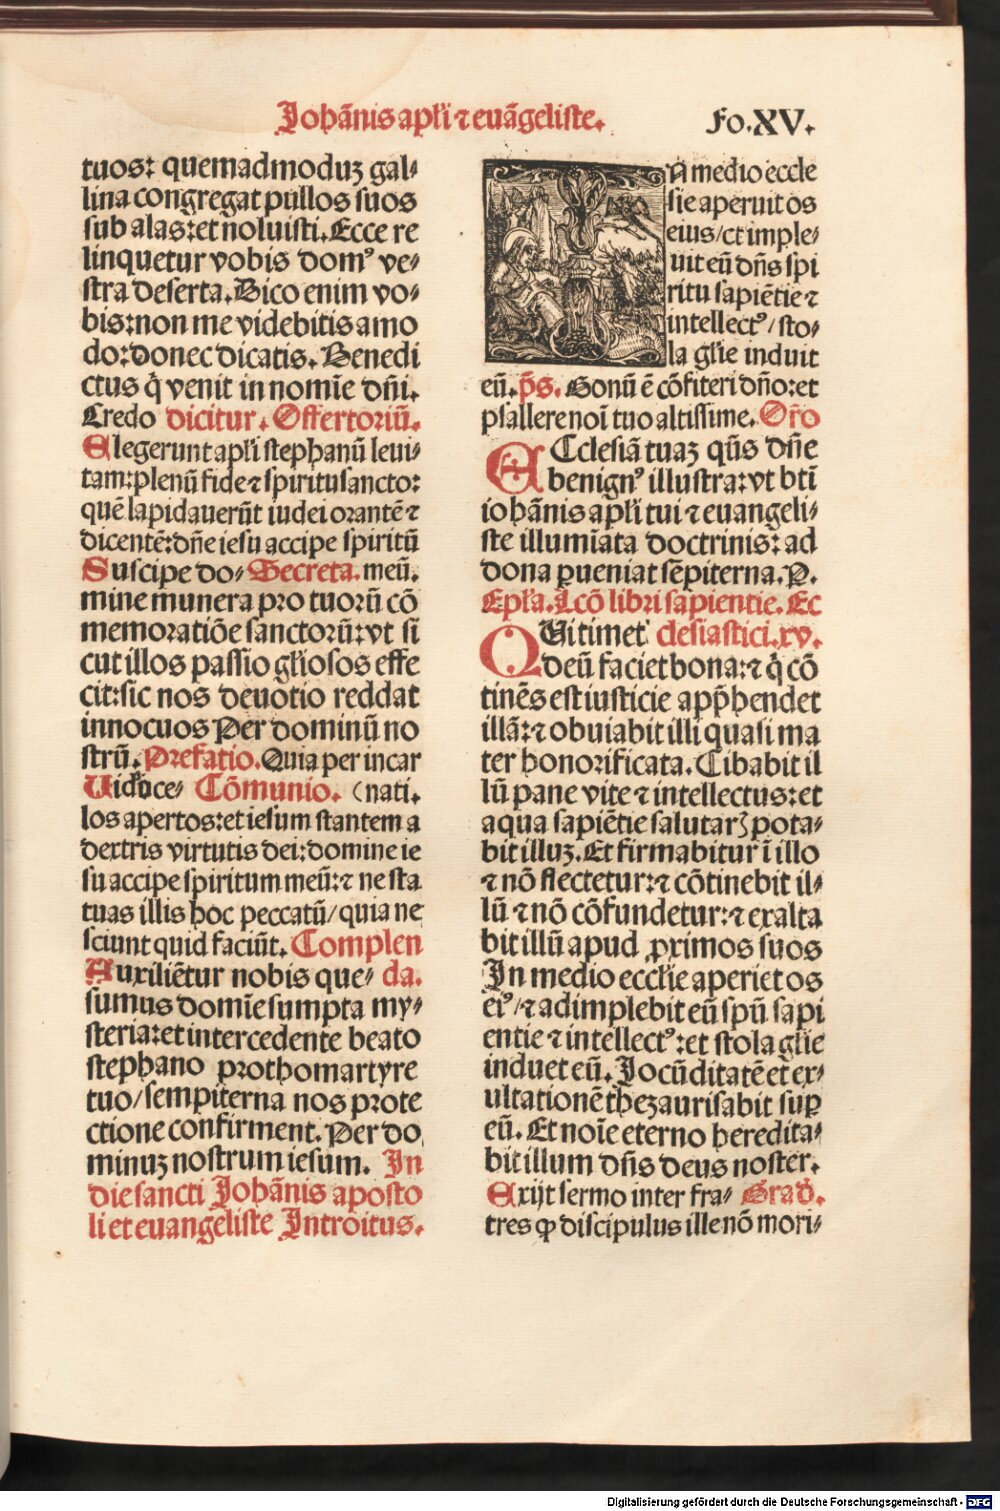 Johānis apľi ⁊ euāgeliste.
Fo. XV.
tuos: quemadmoduꝫ gal⸗
lina congregat pullos suos
sub alas: et noluisti. Ecce re
linquetur vobis domꝰ ve⸗
stra deserta. Dico enim vo⸗
bis: non me videbitis amo
do: donec dicatis. Benedi
ctus q̇ venit in nomīe dñi.
Credo dicitur. Offertoriū.
Elegerunt apľi stephanū leui⸗
tam: plenū fide ⁊ spiritusancto:
quē lapidauerūt iudei orantē ⁊
dicentē: dñe iesu accipe spiritū
Suscipe do⸗ Secreta. meū.
mine munera pro tuorū cō
memoratiōe sanctorū: vt si
cut illos passio gľiosos effe
cit: sic nos deuotio reddat
innocuos Per dominū no
strū. Prefatio. Quia per incar
Uideo ce⸗ Cōmunio. (nati.
los apertos: et iesum stantem a
dextris virtutis dei: domine ie
su accipe spiritum meū: ⁊ ne sta
tuas illis hoc peccatū/ quia ne
sciunt quid faciūt. Complen
Auxiliētur nobis que⸗ da.
sumus domīe sumpta my⸗
steria: et intercedente beato
stephano prothomartyre
tuo/ sempiterna nos prote
ctione confirment. Per do
minuꝫ nostrum iesum. In
die sancti Johānis aposto
li et euangeliste Introitus.
IN medio eccle
sie aperuit os
eius/ et imple⸗
uit eū dñs spi
ritu sapiētie ⁊
intellectꝰ/ sto⸗
la gľie induit
eū. p̄s. Bonū ē cōfiteri dño: et
psallere noī tuo altissime. Oro
ECclesiā tuaꝫ q̄s dñe
benignꝰ illustra: vt btī
iohānis apľi tui ⁊ euangeli⸗
ste illumīata doctrinis: ad
dona ꝑueniat sēpiterna. P.
Epľa. Lcō libri sapientie. Ec
QUi timet clesiastici. xv.
deū faciet bona: ⁊ q̇ cō
tinēs est iusticie app̄hendet
illā: ⁊ obuiabit illi quasi ma
ter honorificata. Cibabit il
lū pane vite ⁊ intellectus: et
aqua sapiētie salutarꝭ pota⸗
bit illuꝫ. Et firmabitur ī illo
⁊ nō flectetur: ⁊ cōtinebit il⸗
lū ⁊ nō cōfundetur: ⁊ exalta
bit illū apud ꝓximos suos
In medio eccľie aperiet os
eiꝰ/ ⁊ adimplebit eū spū sapi
entie ⁊ intellectꝰ: et stola gľie
induet eū. Jocūditatē et ex⸗
ultationē thezaurisabit suꝑ
eū. Et noīe eterno heredita⸗
bit illum dñs deus noster.
Exijt sermo inter fra⸗ Grad̄.
tres ꝙ discipulus ille nō mori⸗
Digitalisierung gefördert durch die Deutsche Forschungsgemeinschaft - DFG